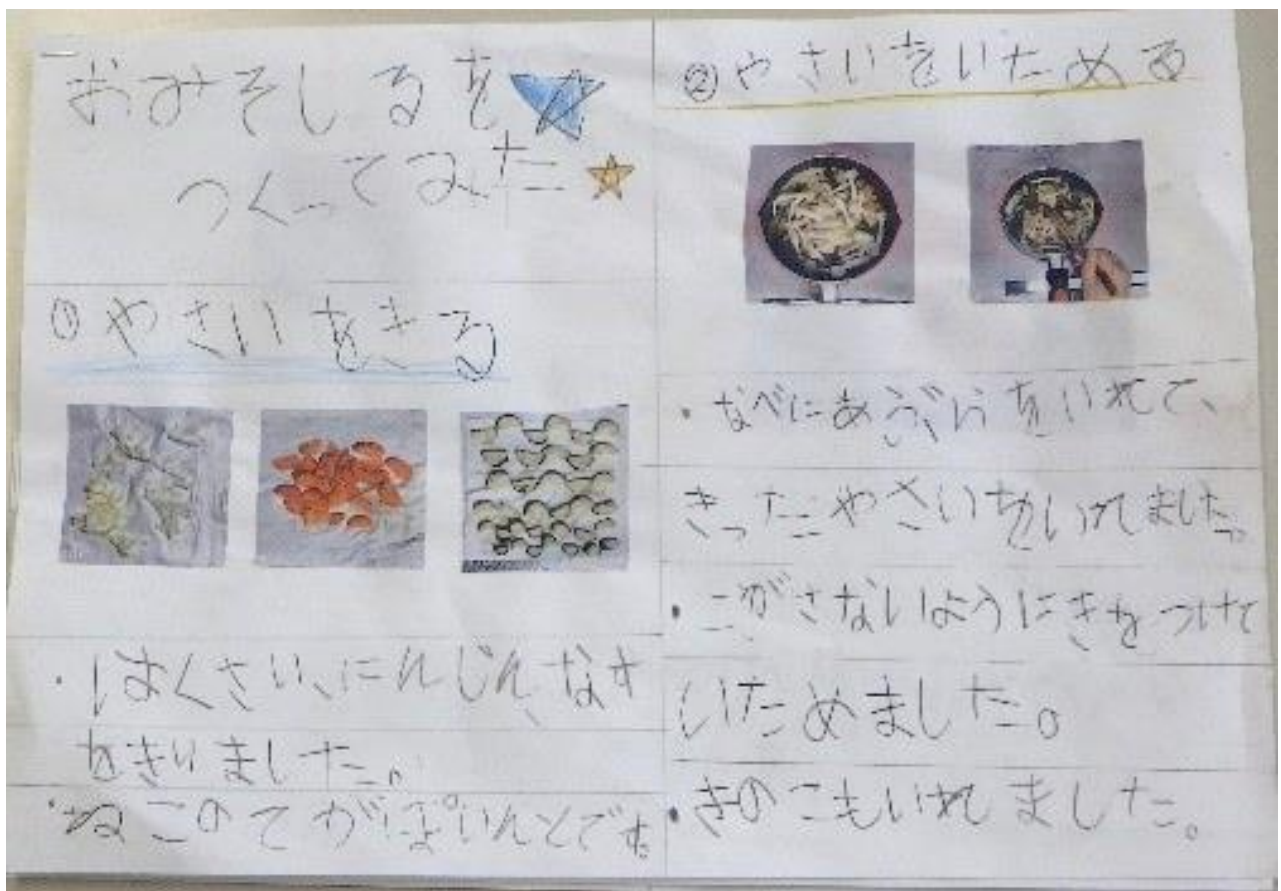 おみそしるを
つくってみた
①やさいをきる
・はくさい、にんじん、なす
をきりました。
・ねこのてがぽいんとです。
②やさいをいためる
・なべにあぶらをいれて、
きったやさいをいれました。
・こがさないようにきをつけて
いためました。
・きのこもいれました。